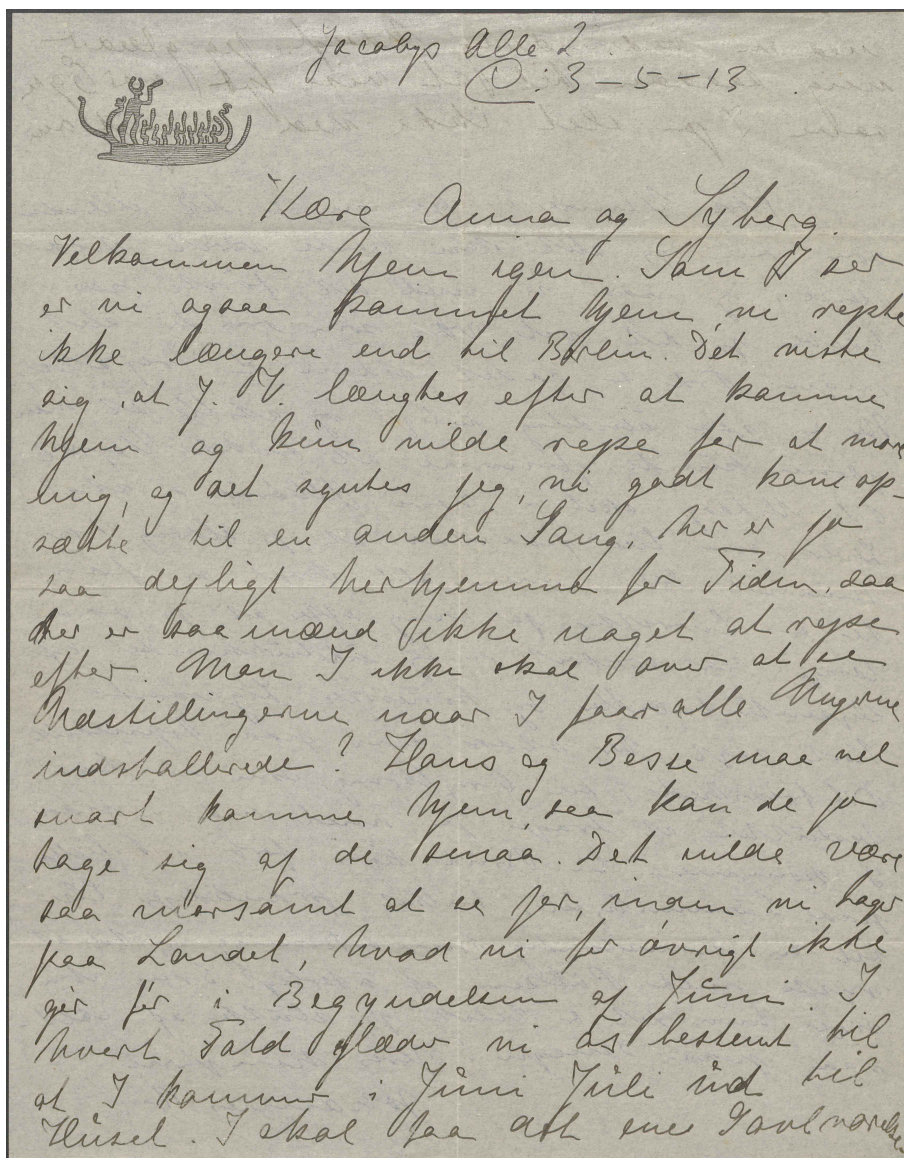 Jacobys Alle 2.
C: 3-5-13.
Kære Anna og Syberg.
Velkommen hjem igen. Som I ser
er vi ogsaa kommet hjem, vi rejste
ikke længere end til Berlin. Det viste
sig, at J. V. længtes efter at komme
hjem og kun vilde rejse for at more
mig, og det syntes jeg, vi godt kan op-
sætte til en anden Gang, her er jo
saa dejligt herhjemme for Tiden, saa
her er saamænd ikke noget at rejse
efter. Mon I ikke skal over at se
Udstillingerne naar I faar alle Ungerne
indstallerede? Hans og Besse maa vel
snart komme hjem, saa kan de jo
tage sig af de smaa. Det vilde være
saa morsomt at se jer, inden vi tager
paa Landet, hvad vi for øvrigt ikke
gør før i Begyndelsen af Juni. I
hvert Fald glæder vi os bestemt til
at I kommer i Juni Juli ud til
Huset. I skal faa det ene Gavlværelse